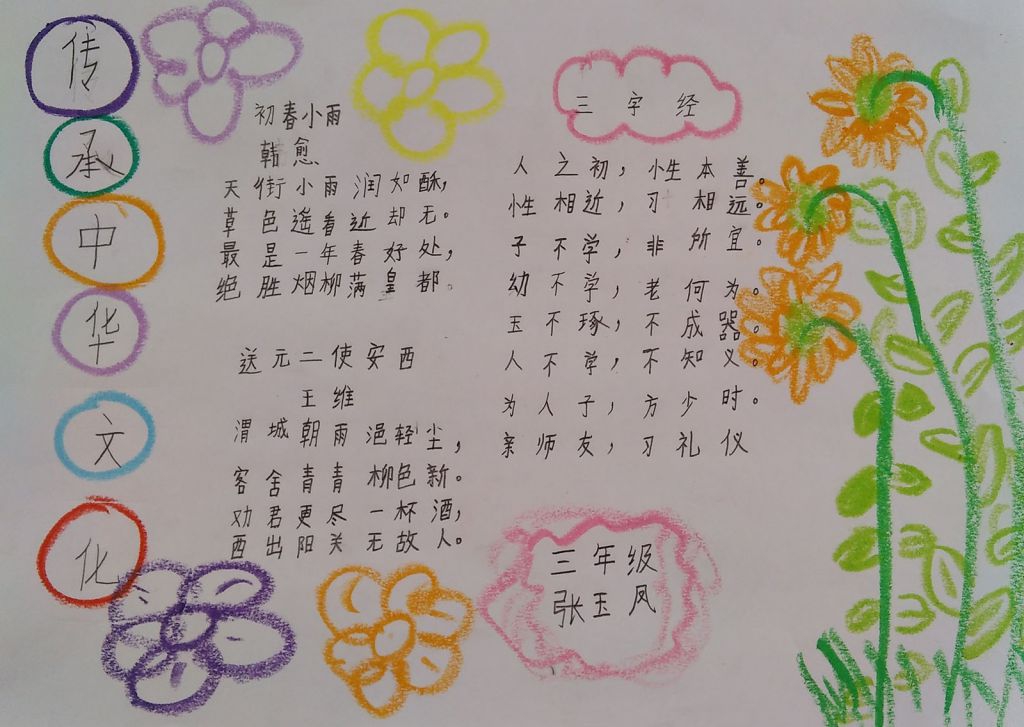 传
承
中
华
文
化
初春小雨
韩愈
天街小雨润如酥，
草色遥看近却无。
最是一年春好处，
绝胜烟柳满皇都。
送元二使安西
王维
渭城朝雨浥轻尘，
客舍青青柳色新。
劝君更尽一杯酒，
西出阳关无故人。
三字经
人之初，性本善。
性相近，习相远。
子不学，非所宜。
幼不学，老何为。
玉不琢，不成器。
人不学，不知义。
为人子，方少时。
亲师友，习礼仪
三年级
张玉凤